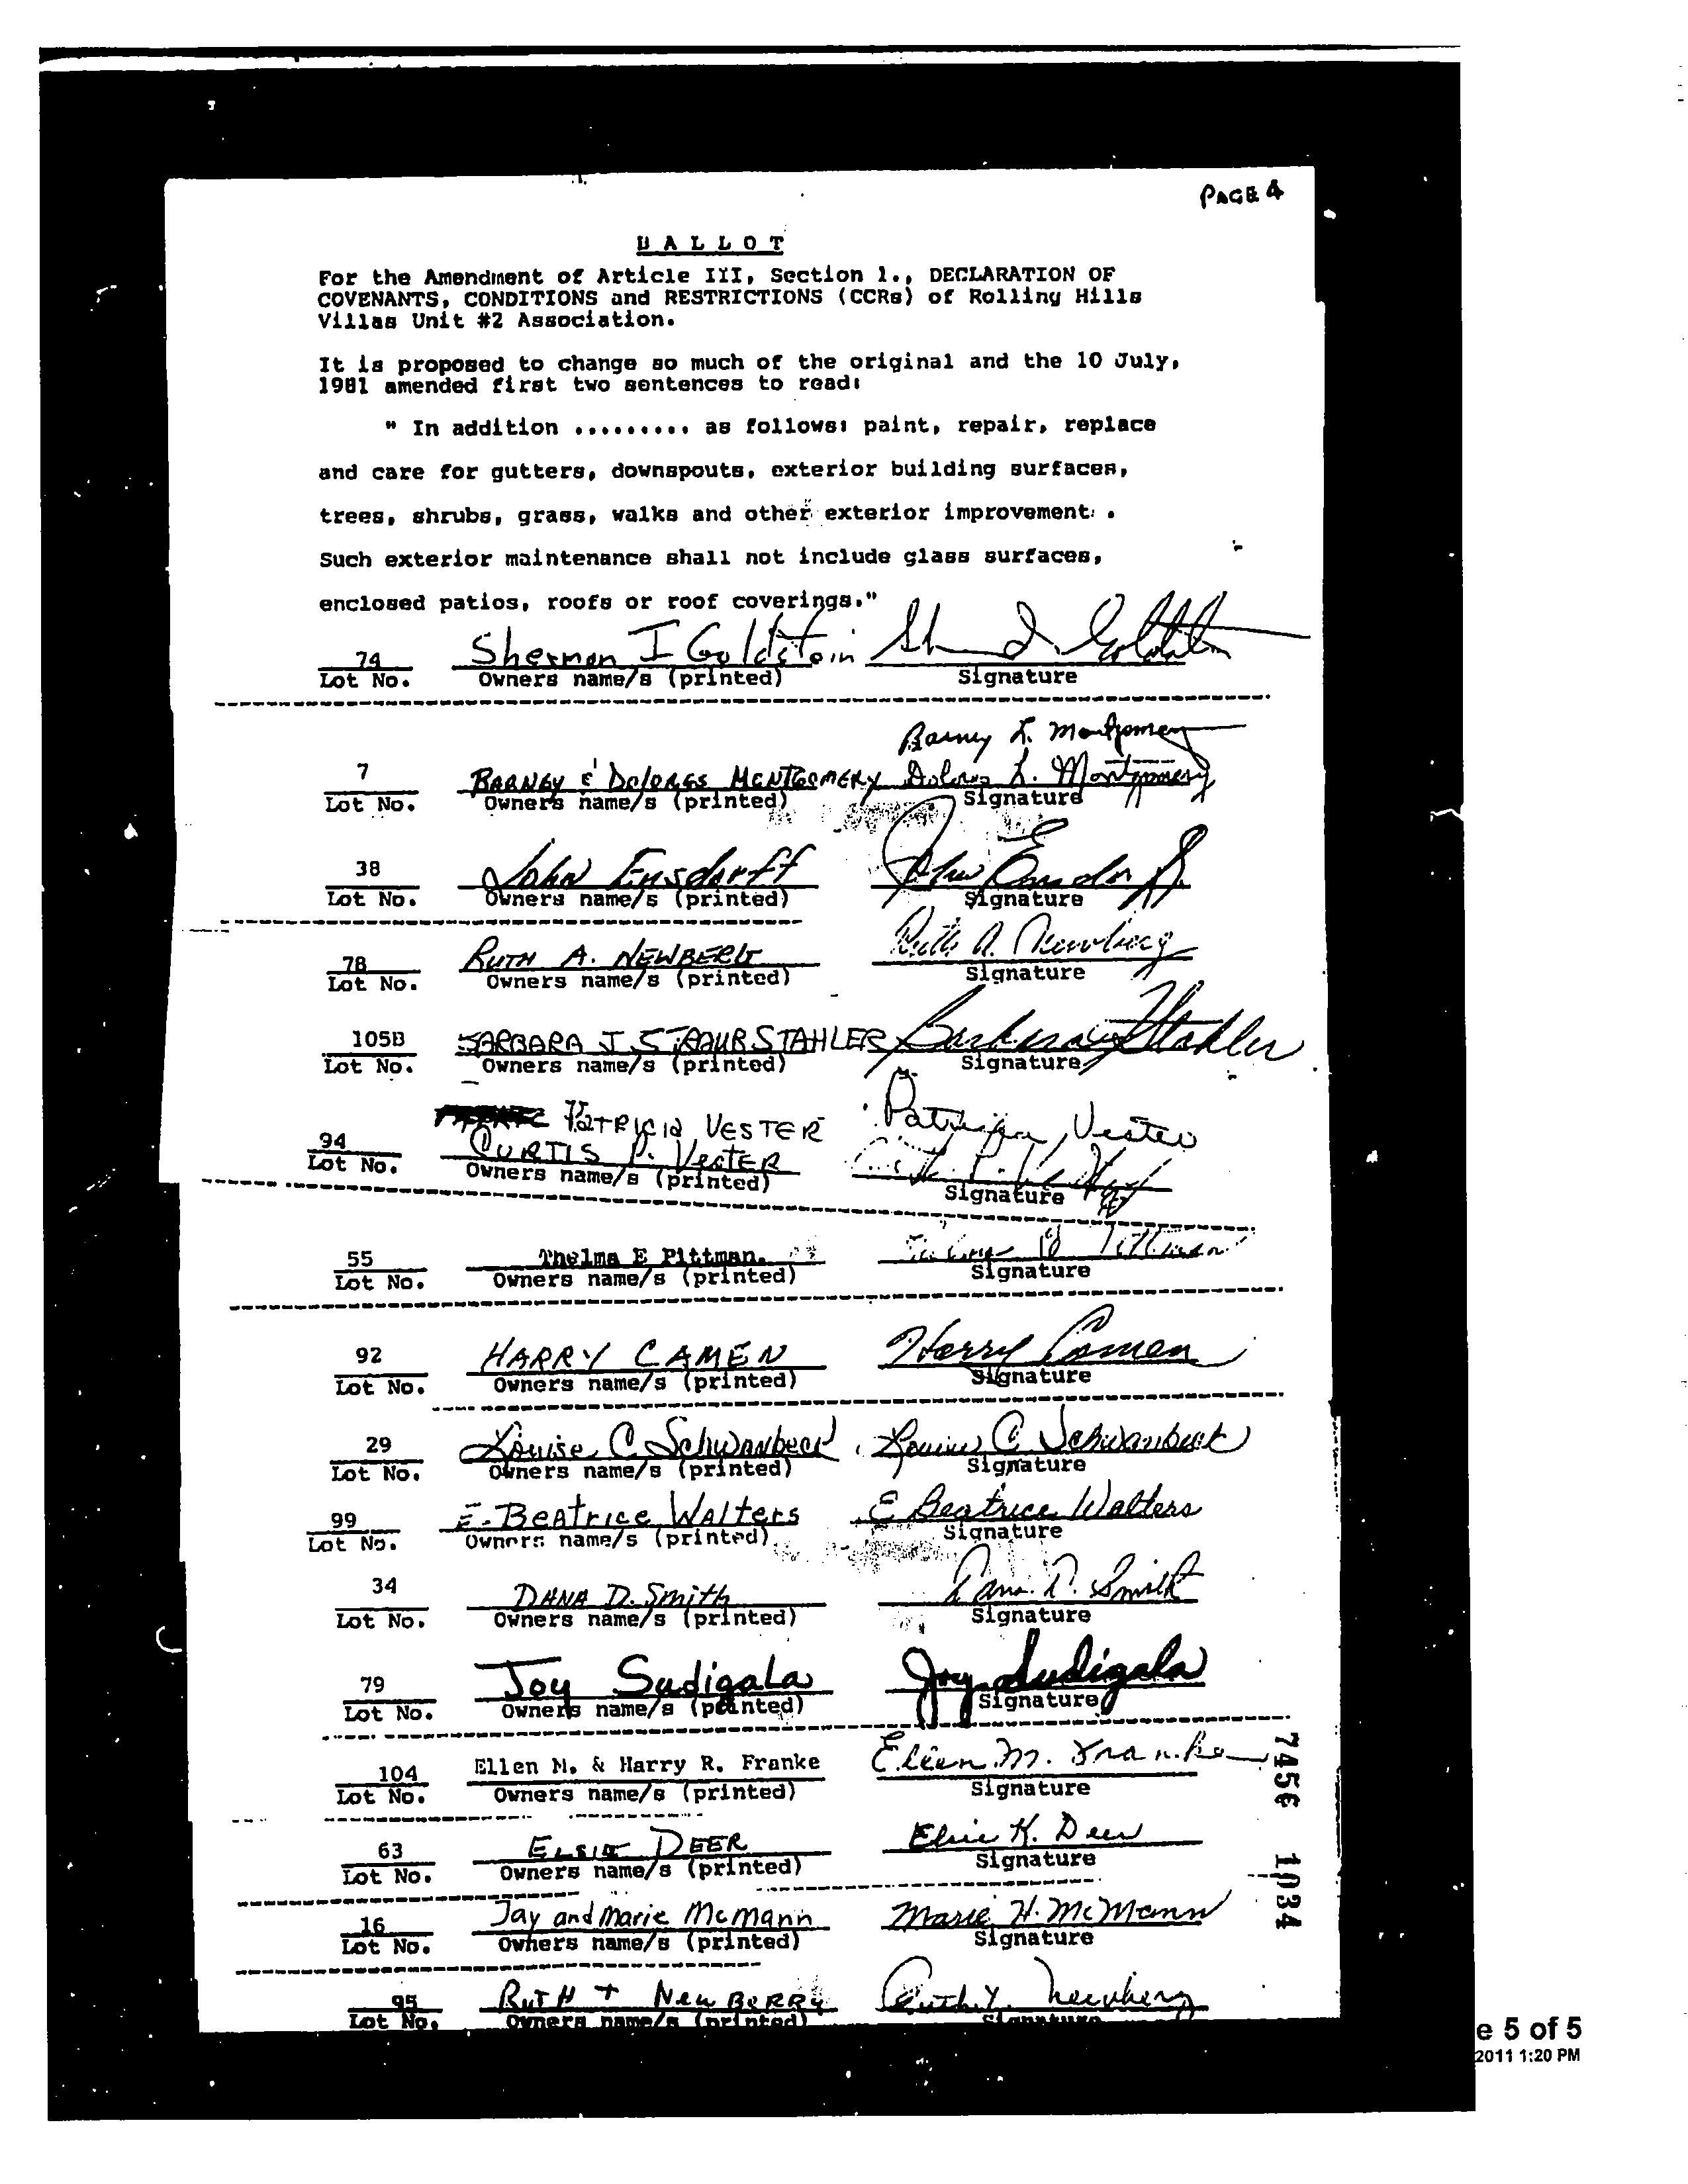 PAGE 4
BALLOT
For the Amendment of Article III, Section 1., DECLARATION OF
COVENANTS, CONDITIONS and RESTRICTIONS (CCRs) of Rolling Hills
Villas Unit #2 Association.
It is proposed to change so much of the original and the 10 July,
1981 amended first two sentences to read:
" In addition ......... as follows: paint, repair, replace
and care for gutters, downspouts, exterior building surfaces,
trees, shrubs, grass, walks and other exterior improvement .
Such exterior maintenance shall not include glass surfaces,
enclosed patios, roofs or roof coverings."
74 Sherman I Goldstein
Lot No. Owners name/s (printed) Signature
Barney L. Montgomery
7 BARNEY & DOLORES MONTGOMERY Dolores L. Montgomery
Lot No. Owners name/s (printed) Signature
38 John Ensdorff John Ensdorff
Lot No. Owners name/s (printed) Signature
78 RUTH A. NEWBERG Ruth A. Newberg
Lot No. Owners name/s (printed) Signature
105B BARBARA J STAHLER Barbara Stahler
Lot No. Owners name/s (printed) Signature
PATRICIA VESTER Patricia Vester
94 CURTIS P. VESTER
Lot No. Owners name/s (printed) Signature
55 Thelma E Pittman. Pittman
Lot No. Owners name/s (printed) Signature
92 HARRY CAMEN Harry Camen
Lot No. Owners name/s (printed) Signature
29 Louise C Schwanbeck Louise C Schwanbeck
Lot No. Owners name/s (printed) Signature
99 E. Beatrice Walters E Beatrice Walters
Lot No. Owners name/s (printed) Signature
34 DANA D. Smith Dana D. Smith
Lot No. Owners name/s (printed) Signature
79 Joy Sudigala Joy Sudigala
Lot No. Owners name/s (printed) Signature
104 Ellen M. & Harry R. Franke Ellen M. Franke
Lot No. Owners name/s (printed) Signature
63 ELSIE DEER Elsie K. Deer
Lot No. Owners name/s (printed) Signature
16 Jay and Marie McMann Marie H. McMann
Lot No. Owners name/s (printed) Signature
95 RUTH T NEWBERRY Ruth T. Newberry
Lot No. Owners name/s (printed) Signature
7456 1034
e 5 of 5
2011 1:20 PM